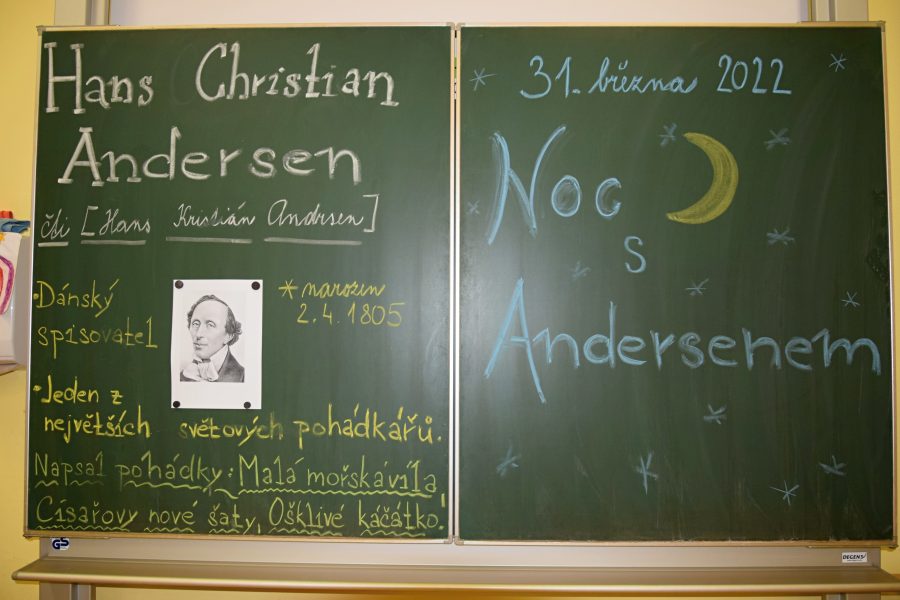 Hans Christian
Andersen
čti [Hans Kristián Andrsen]
•Dánský
spisovatel
* narozen
2.4.1805
•Jeden z
největších světových pohádkářů.
Napsal pohádky: Malá mořská víla,
Císařovy nové šaty, Ošklivé káčátko.
31. března 2022
Noc
s
Andersenem
GS
DEGEN